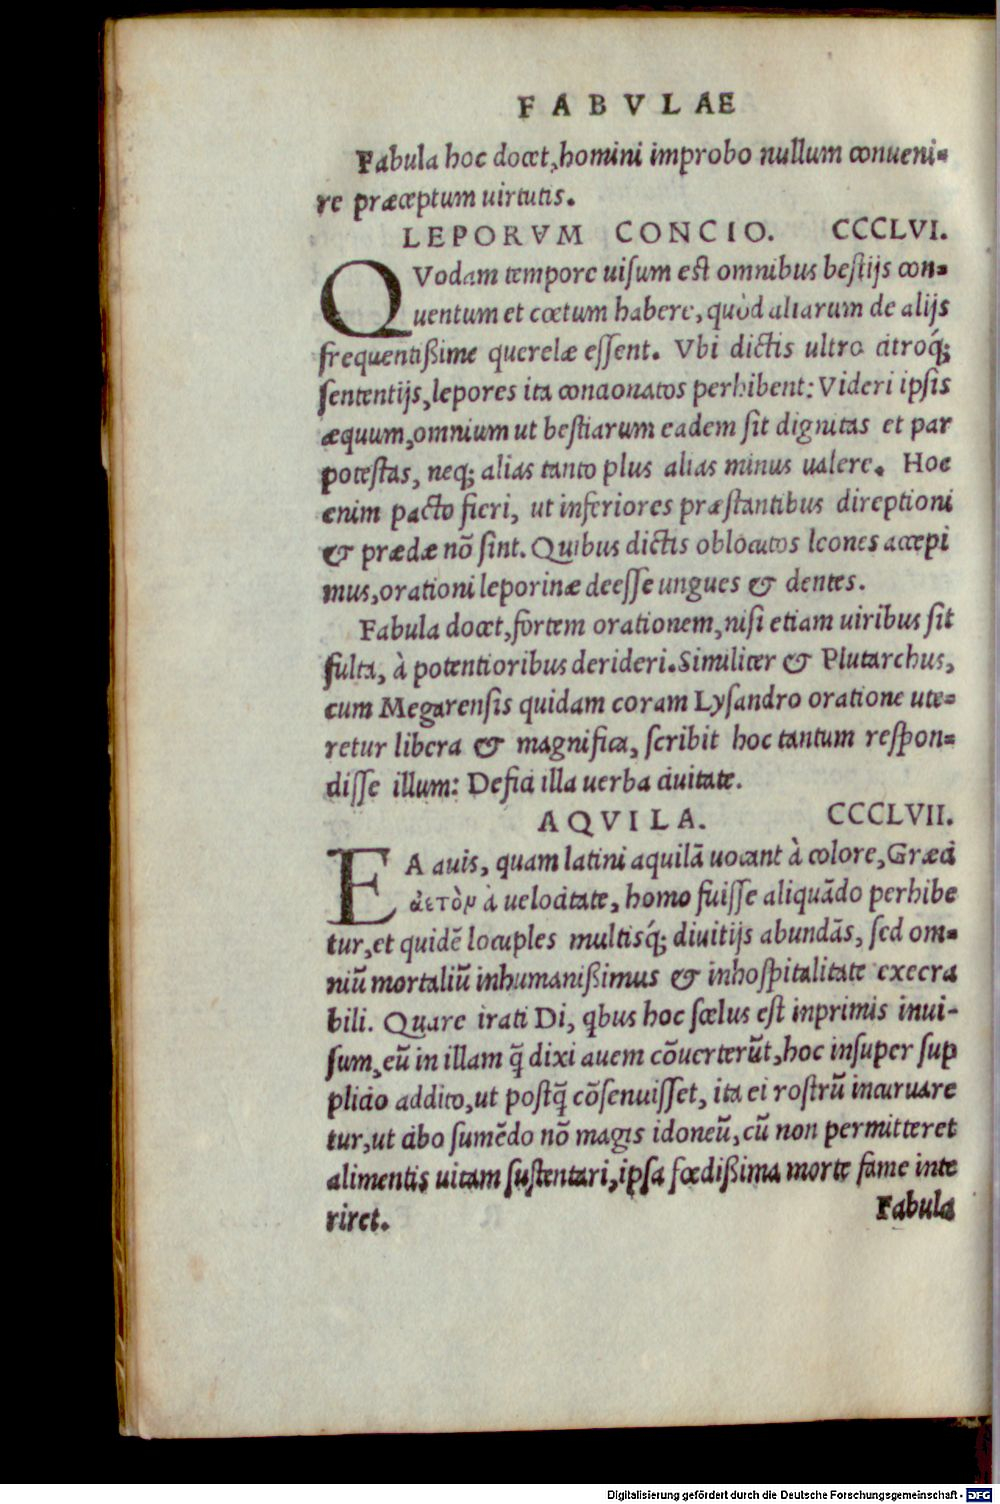 FABVLAE
Fabula hoc docet, homini improbo nullum conueni-
re præceptum uirtutis.
LEPORVM CONCIO. CCCLVI.
QVodam tempore uisum est omnibus bestijs con-
uentum et cœtum habere, quòd aliarum de alijs
frequentißime querelæ essent. Vbi dictis ultro citroq́;
sententijs, lepores ita concionatos perhibent: Videri ipsis
æquum, omnium ut bestiarum eadem sit dignitas et par
potestas, neq; alias tanto plus alias minus ualere. Hoc
enim pacto fieri, ut inferiores præstantibus direptioni
& prædæ nõ sint. Quibus dictis oblocutos leones accepi
mus, orationi leporinæ deesse ungues & dentes.
Fabula docet, fortem orationem, nisi etiam uiribus sit
fulta, à potentioribus derideri. Similiter & Plutarchus,
cum Megarensis quidam coram Lysandro oratione ute-
retur libera & magnifica, scribit hoc tantum respon-
disse illum: Defici illa uerba ciuitate.
AQVILA. CCCLVII.
EA auis, quam latini aquilã uocant à colore, Græci
ἀετὸν à uelocitate, homo fuisse aliquãdo perhibe
tur, et quidẽ locuples multisq́; diuitijs abundãs, sed om-
niũ mortaliũ inhumanißimus & inhospitalitate execra
bili. Quare irati Di, qbus hoc scelus est inprimis inui-
sum, eũ in illam q̃ dixi auem cõuerterũt, hoc insuper sup
plicio addito, ut postq̃ cõsenuisset, ita ei rostrũ incuruare
tur, ut cibo sumẽdo nõ magis idoneũ, cũ non permitteret
alimentis uitam sustentari, ipsa fœdißima morte fame inte
riret. Fabula
Digitalisierung gefördert durch die Deutsche Forschungsgemeinschaft - DFG